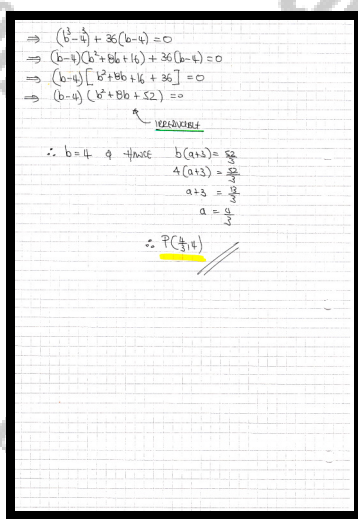 ⇒ (b³-4³) + 36(b-4) = 0
⇒ (b-4)(b²+8b+16) + 36(b-4) = 0
⇒ (b-4)[b²+8b+16+36] = 0
⇒ (b-4)(b²+8b+52) = 0
IRREDUCIBLE
∴ b=4 & HENCE b(a+3) = 52/3
4(a+3) = 52/3
a+3 = 13/3
a = 4/3
∴ P(4/3, 4)